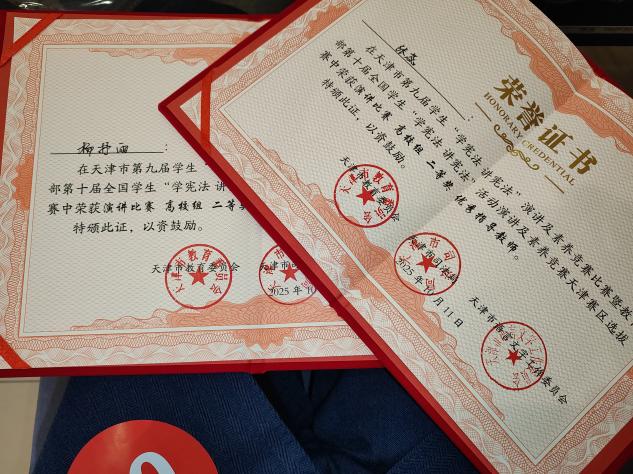 在天津市第九届学生“
部第十届全国学生“学宪法 讲
赛中荣获演讲比赛 高校组 二等奖
特颁此证，以资鼓励。
天津市教育委员会
天津市司
2025 年 10
荣誉证书
HONORARY CREDENTIAL
在天津市第九届学生“学宪法 讲宪法”演讲及素养竞赛比赛暨教
部第十届全国学生“学宪法 讲宪法”活动演讲及素养竞赛天津赛区选拔
赛中荣获演讲比赛 高校组 二等奖 优秀指导教师。
特颁此证，以资鼓励。
天津市教育委员会
天津市司法局
2025 年 10 月 11 日
天津市语言文字工作委员会